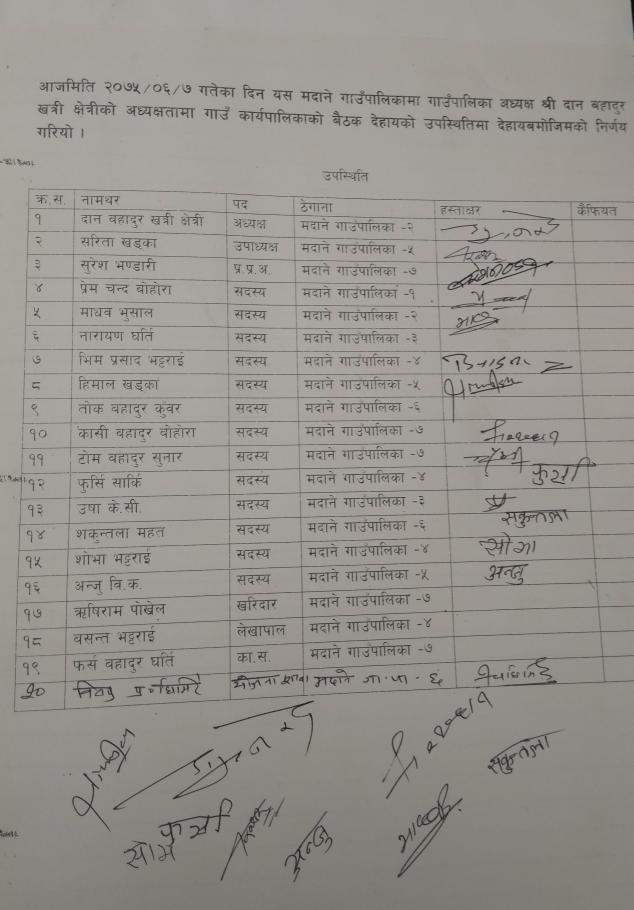 आजमिति २०७५/०६/७ गतेका दिन यस मदाने गाउँपालिकामा गाउँपालिका अध्यक्ष श्री दान बहादुर
खत्री क्षेत्रीको अध्यक्षतामा गाउँ कार्यपालिकाको बैठक देहायको उपस्थितिमा देहायबमोजिमको निर्णय
गरियो ।
उपस्थिति
क्र.स. नामथर पद ठेगाना हस्ताक्षर कैफियत
१ दान बहादुर खत्री क्षेत्री अध्यक्ष मदाने गाउँपालिका -२
२ सरिता खड्का उपाध्यक्ष मदाने गाउँपालिका -५
३ सुरेश भण्डारी प्र.प्र.अ. मदाने गाउँपालिका -७
४ प्रेम चन्द बोहोरा सदस्य मदाने गाउँपालिका -१
५ माधव भुसाल सदस्य मदाने गाउँपालिका -२
६ नारायण घर्ति सदस्य मदाने गाउँपालिका -३
७ भिम प्रसाद भट्टराई सदस्य मदाने गाउँपालिका -४
८ हिमाल खड्का सदस्य मदाने गाउँपालिका -५
९ तोक बहादुर कुंवर सदस्य मदाने गाउँपालिका -६
१० कासी बहादुर बोहोरा सदस्य मदाने गाउँपालिका -७
११ टोम बहादुर सुनार सदस्य मदाने गाउँपालिका -७
१२ फुर्सि सार्कि सदस्य मदाने गाउँपालिका -४ फुर्सा
१३ उषा के.सी. सदस्य मदाने गाउँपालिका -३
१४ शकुन्तला महत सदस्य मदाने गाउँपालिका -६ सकुन्तला
१५ शोभा भट्टराई सदस्य मदाने गाउँपालिका -४ सोभा
१६ अन्जु वि.क. सदस्य मदाने गाउँपालिका -५ अन्जु
१७ ऋषिराम पोखेल खरिदार मदाने गाउँपालिका -७
१८ वसन्त भट्टराई लेखापाल मदाने गाउँपालिका -४
१९ फर्स बहादुर घर्ति का.स. मदाने गाउँपालिका -७
२० मदाने गा.पा. - ६
सकुन्तला
फुर्सा
अन्जु